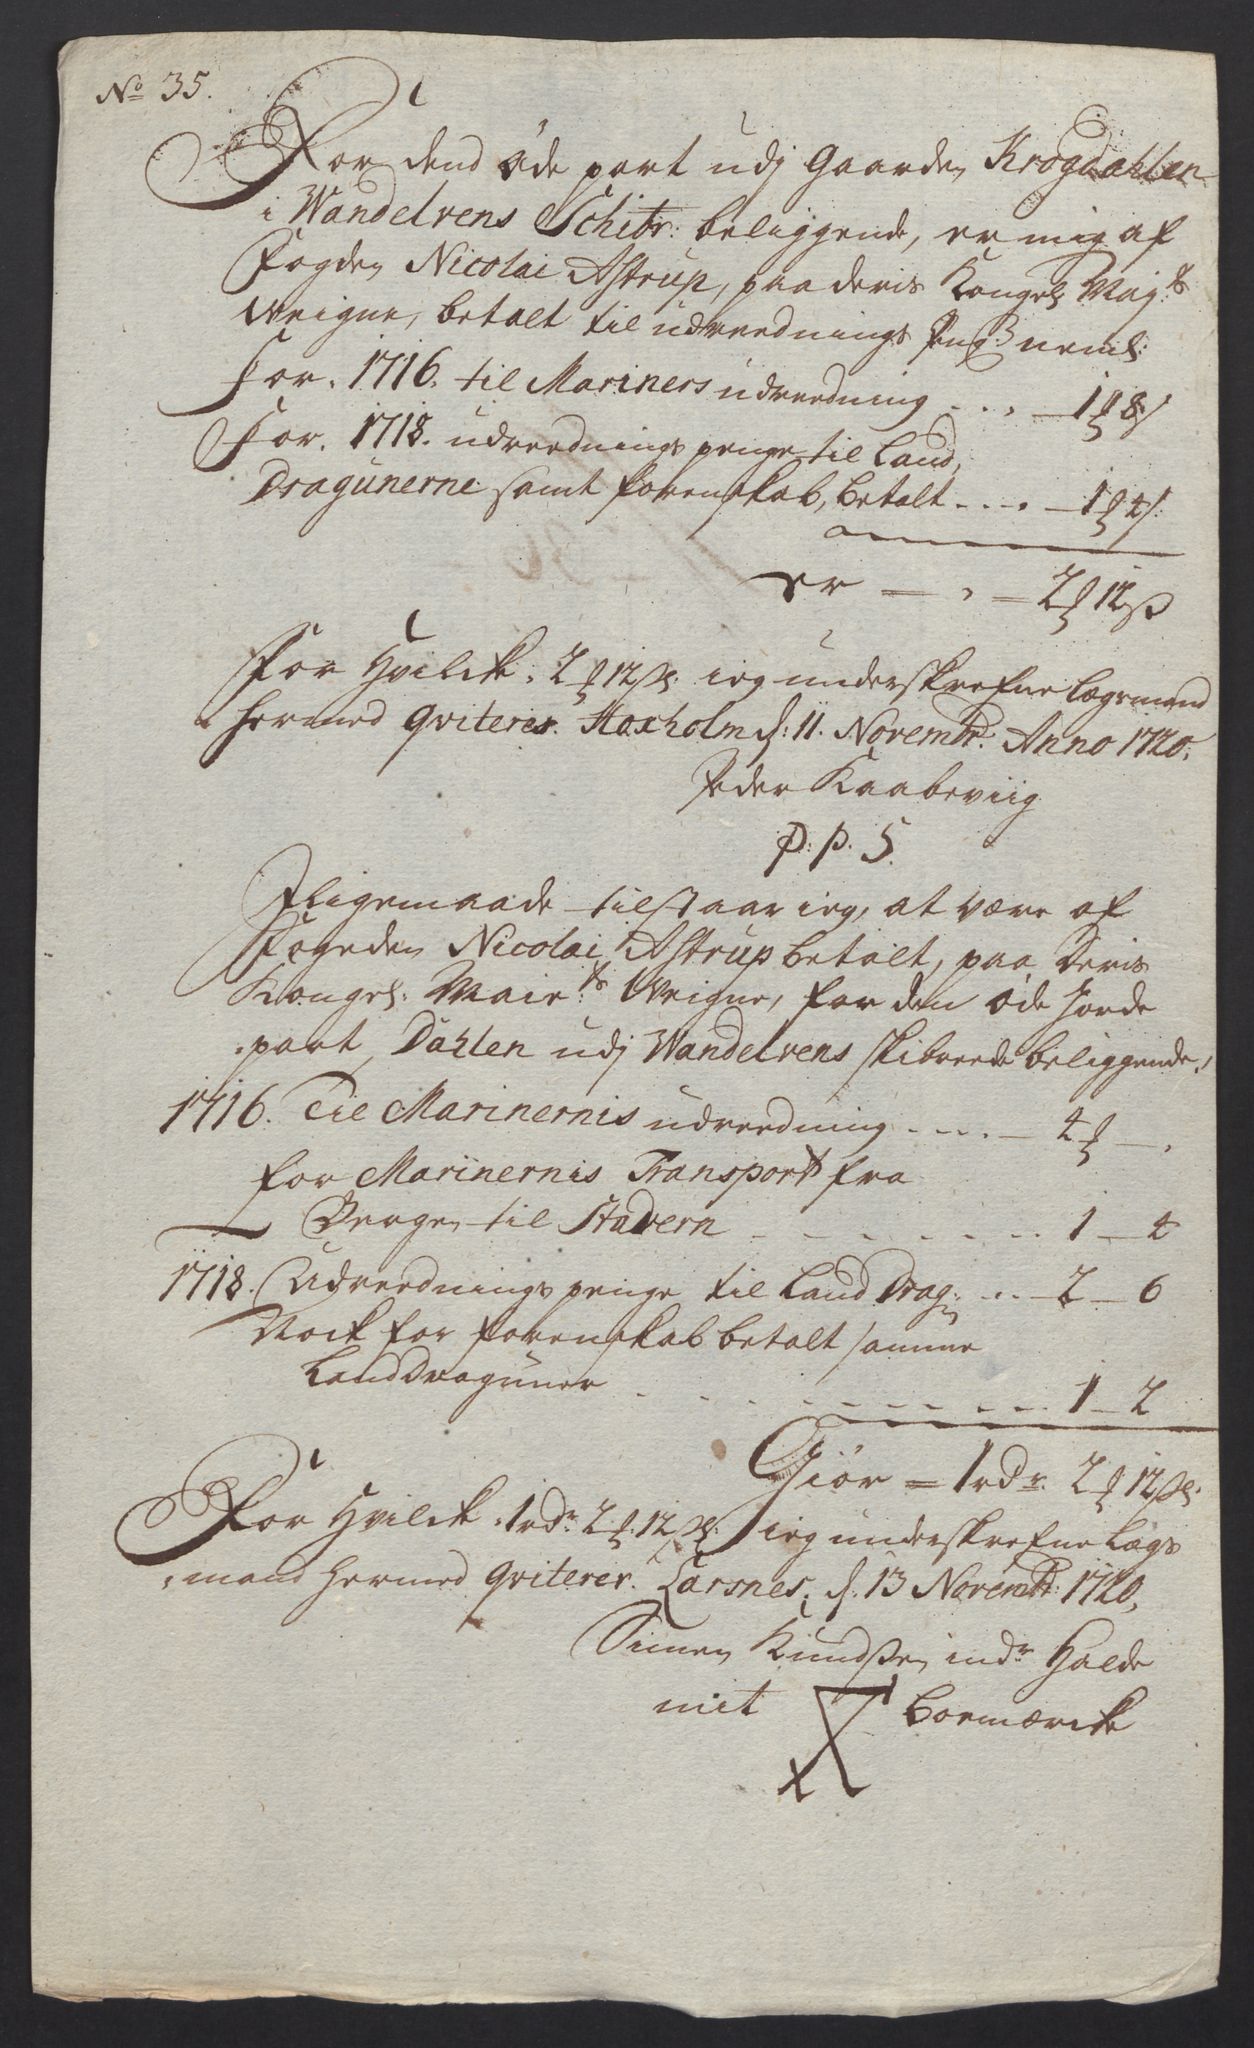 No 35.
For dend öde part udj Gaarden Krogdahlen
i Wandelvens Schibr: beliggende, er mig af
Fogden Nicolai Astrup, paa deris Kongel Maj:ts
Weigne, betalt til udreednings peng: neml:
For. 1716. til Mariners udreedning . . . 1 8
For. 1718. udreednings penge til Land
Dragunerne samt forenskab, betalt . . . . 1 4
er — 2 12 ß
For Hvilcke 2 12 ß ieg underskrefne Lægsmand
hermed qviterer. Hoxholm d: 11. Novembr. Anno 1720.
Peder Kaabeviig
P. P. S.
Iligemaade tilstaar ieg, at være af
Fogeden Nicolai Astrup betalt, paa Deris
Kongel: Maie:ts Weigne, for den öde Jorde
part, Dahlen udj Wandelvens skibreede beliggende.
1716. Til Marinernis udreedning . . . . 4 —
for Marinernis Transport fra
— Bergen til Stavern . . . . . . . 1 — 4
1718. Udreednings penge til Land Drag: . . 2 — 6
Nock for forenskab betalt samme
Land Draguner . . . . . . . . 1 — 2
Giör = 1 rdr. 2 12 ß.
For Hvilcke 1 rdr 2 12 ß ieg underskrefne Lægs
mand hermed qviterer. Larsnes, d. 13 Novembr: 1720,
Simen Knudßen indr Halde
mit Boemærcke